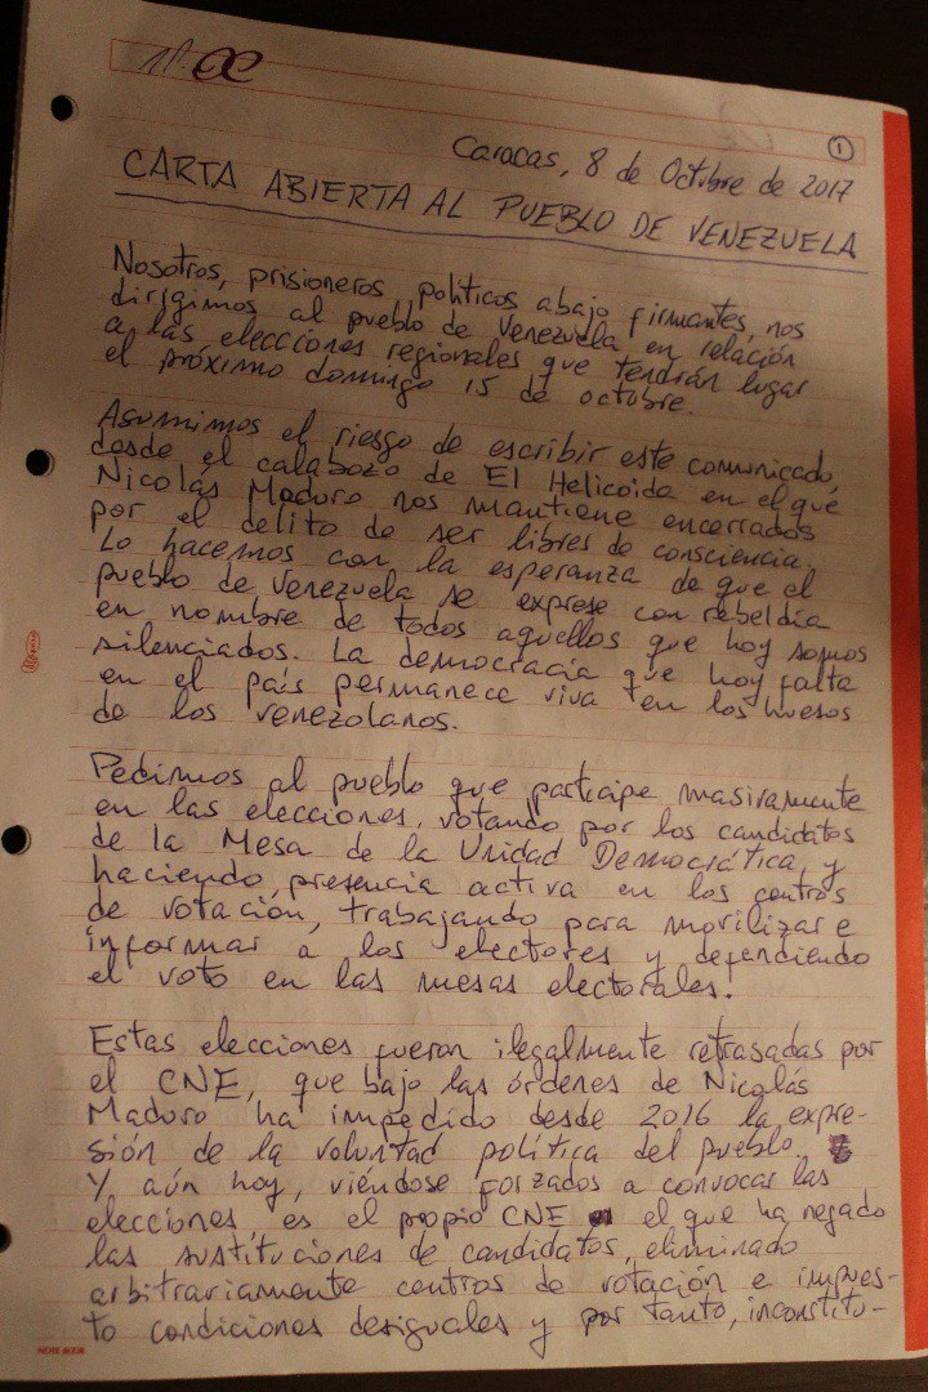 Caracas, 8 de Octubre de 2017
1
CARTA ABIERTA AL PUEBLO DE VENEZUELA
Nosotros, prisioneros políticos abajo firmantes, nos
dirigimos al pueblo de Venezuela en relación
a las elecciones regionales que tendrán lugar
el próximo domingo 15 de octubre.
Asumimos el riesgo de escribir este comunicado,
desde el calabozo de El Helicoide en el que
Nicolás Maduro nos mantiene encerrados
por el delito de ser libres de consciencia.
Lo hacemos con la esperanza de que el
pueblo de Venezuela se exprese con rebeldía
en nombre de todos aquellos que hoy somos
silenciados. La democracia que hoy falta
en el país permanece viva en los huesos
de los venezolanos.
Pedimos al pueblo que participe masivamente
en las elecciones, votando por los candidatos
de la Mesa de la Unidad Democrática, y
haciendo presencia activa en los centros
de votación, trabajando para movilizar e
informar a los electores y defendiendo
el voto en las mesas electorales.
Estas elecciones fueron ilegalmente retrasadas por
el CNE, que bajo las órdenes de Nicolás
Maduro ha impedido desde 2016 la expre-
sión de la voluntad política del pueblo.
Y aún hoy, viéndose forzados a convocar las
elecciones, es el propio CNE el que ha negado
las sustituciones de candidatos, eliminado
arbitrariamente centros de votación e impues-
to condiciones desiguales y por tanto, inconstitu-